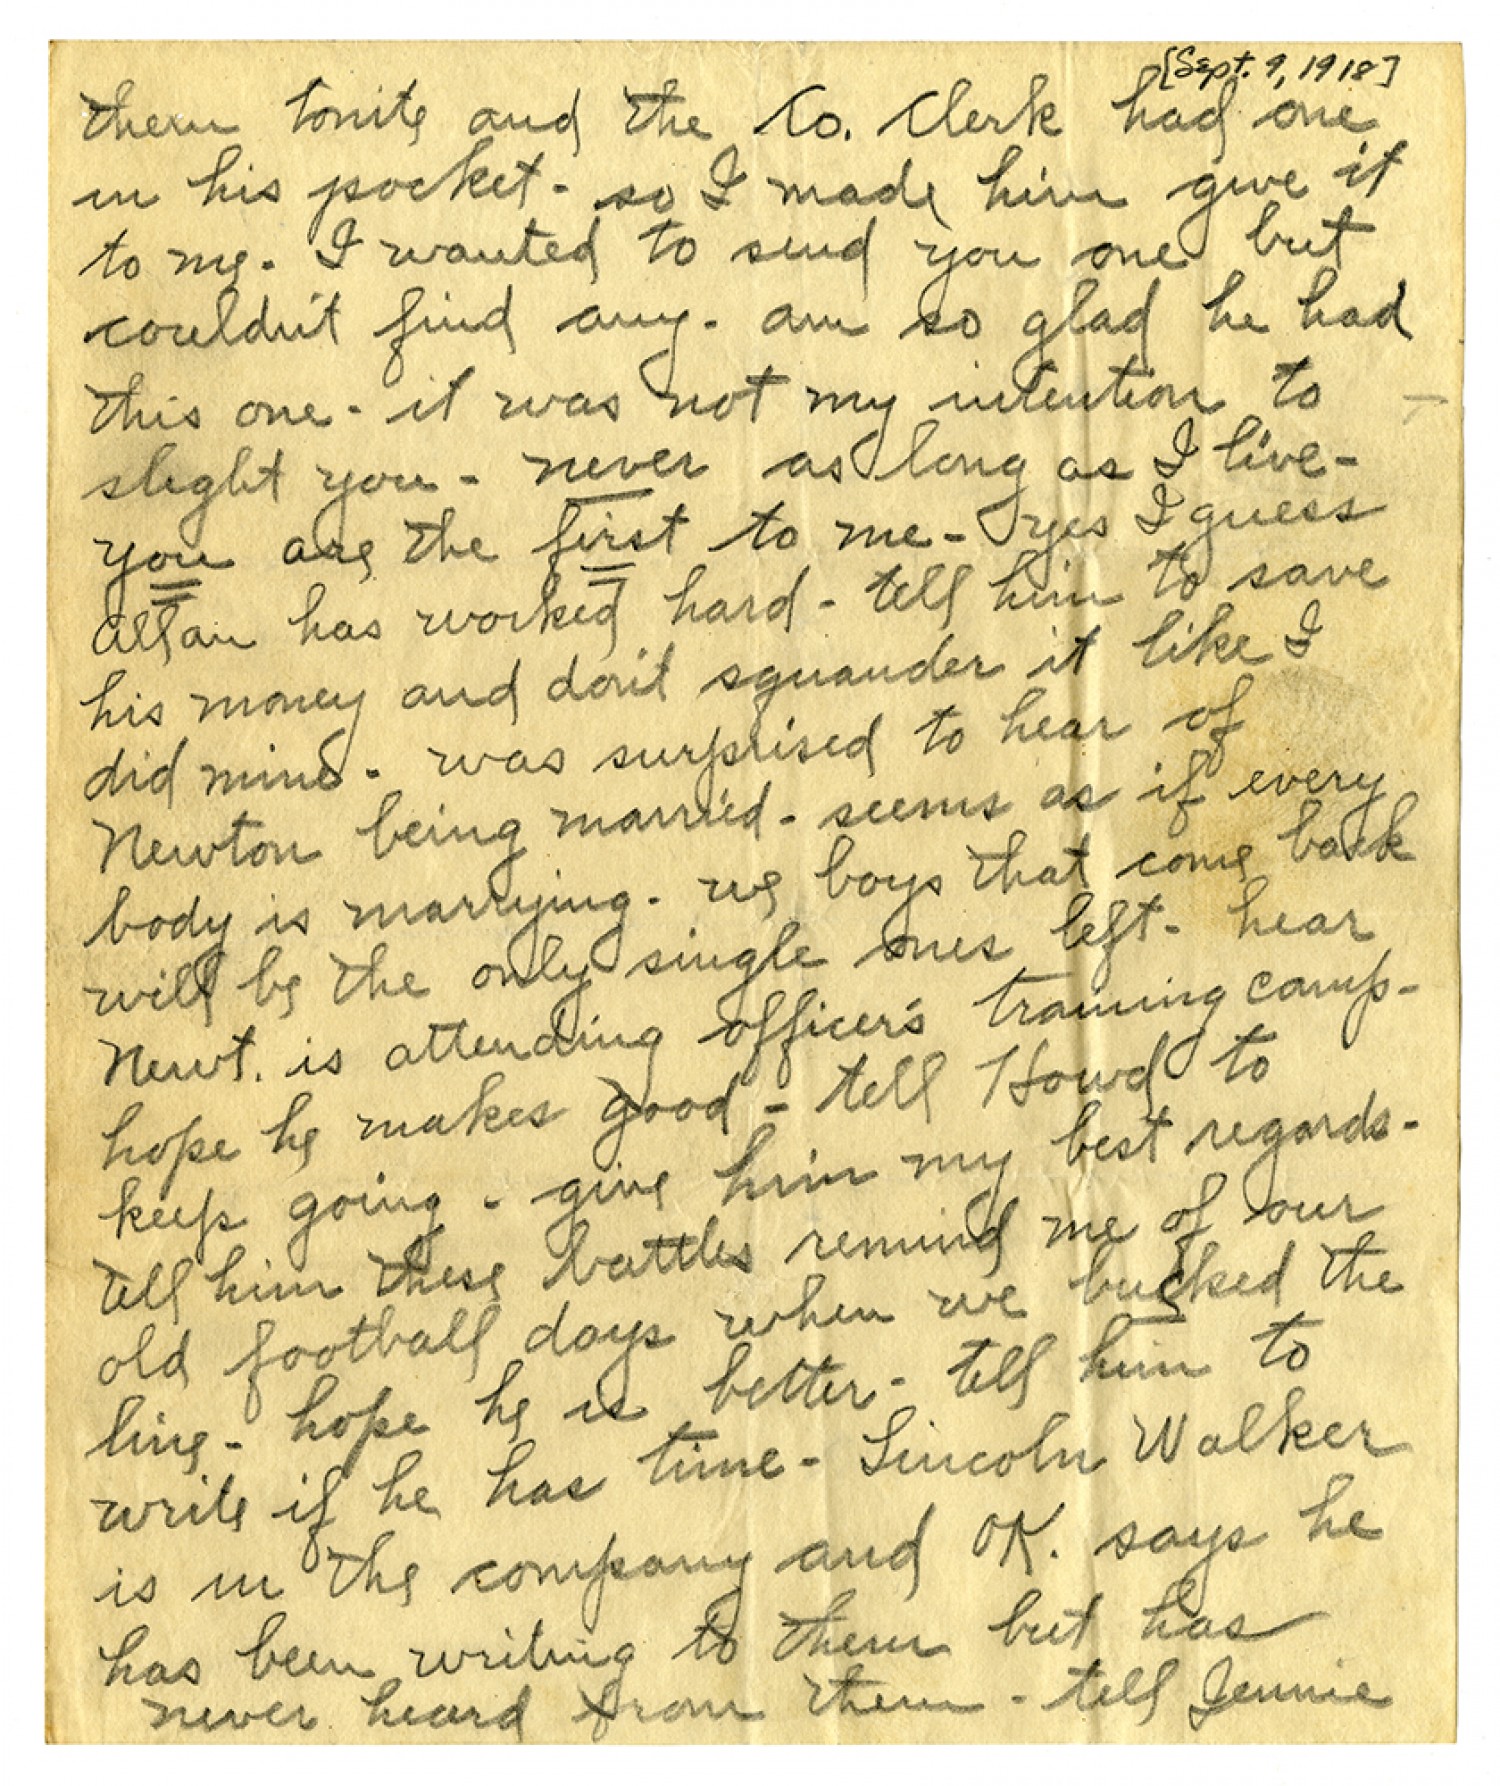 [Sept. 9, 1918]
them tonite and the Co. Clerk had one
in his pocket - so I made him give it
to me. I wanted to send you one but
couldn't find any - am so glad he had
this one - it was not my intention to
slight you - never as long as I live -
you are the first to me - yes I guess
Allan has worked hard - tell him to save
his money and don't squander it like I
did mine - was surprised to hear of
Newton being married - seems as if every
body is marrying - we boys that come back
will be the only single ones left - hear
Newt. is attending officer's training camp -
hope he makes good - tell Howd to
keep going - give him my best regards -
tell him these battles remind me of our
old football days when we bucked the
line - hope he is better - tell him to
write if he has time - Lincoln Walker
is in the company and OK. says he
has been writing to them but has
never heard from them - tell Jennie